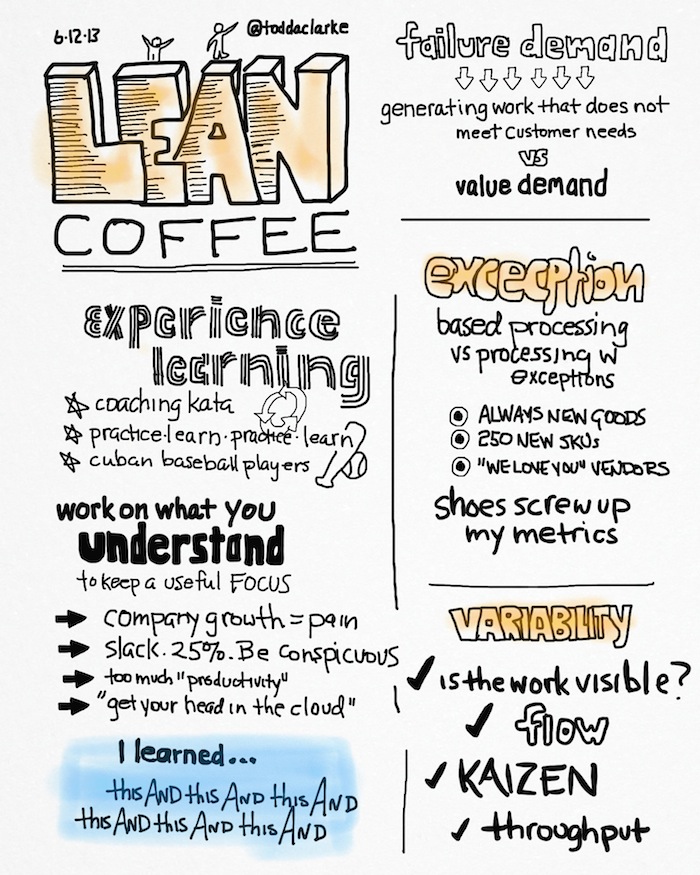 6·12·13
@toddaclarke
LEAN
COFFEE
experience
learning
coaching kata
practice·learn·practice·learn
cuban baseball players
work on what you
understand
to keep a useful FOCUS
company growth = pain
Slack. 25%. Be conspicuous
too much "productivity"
"get your head in the cloud"
I learned...
this AND this AND this AND
this AND this AND this AND
failure demand
generating work that does not
meet customer needs
vs
value demand
excecption
based processing
vs processing w
exceptions
ALWAYS NEW GOODS
250 NEW SKUs
"WE LOVE YOU" VENDORS
shoes screw up
my metrics
VARIABILITY
is the work visible?
flow
KAIZEN
throughput